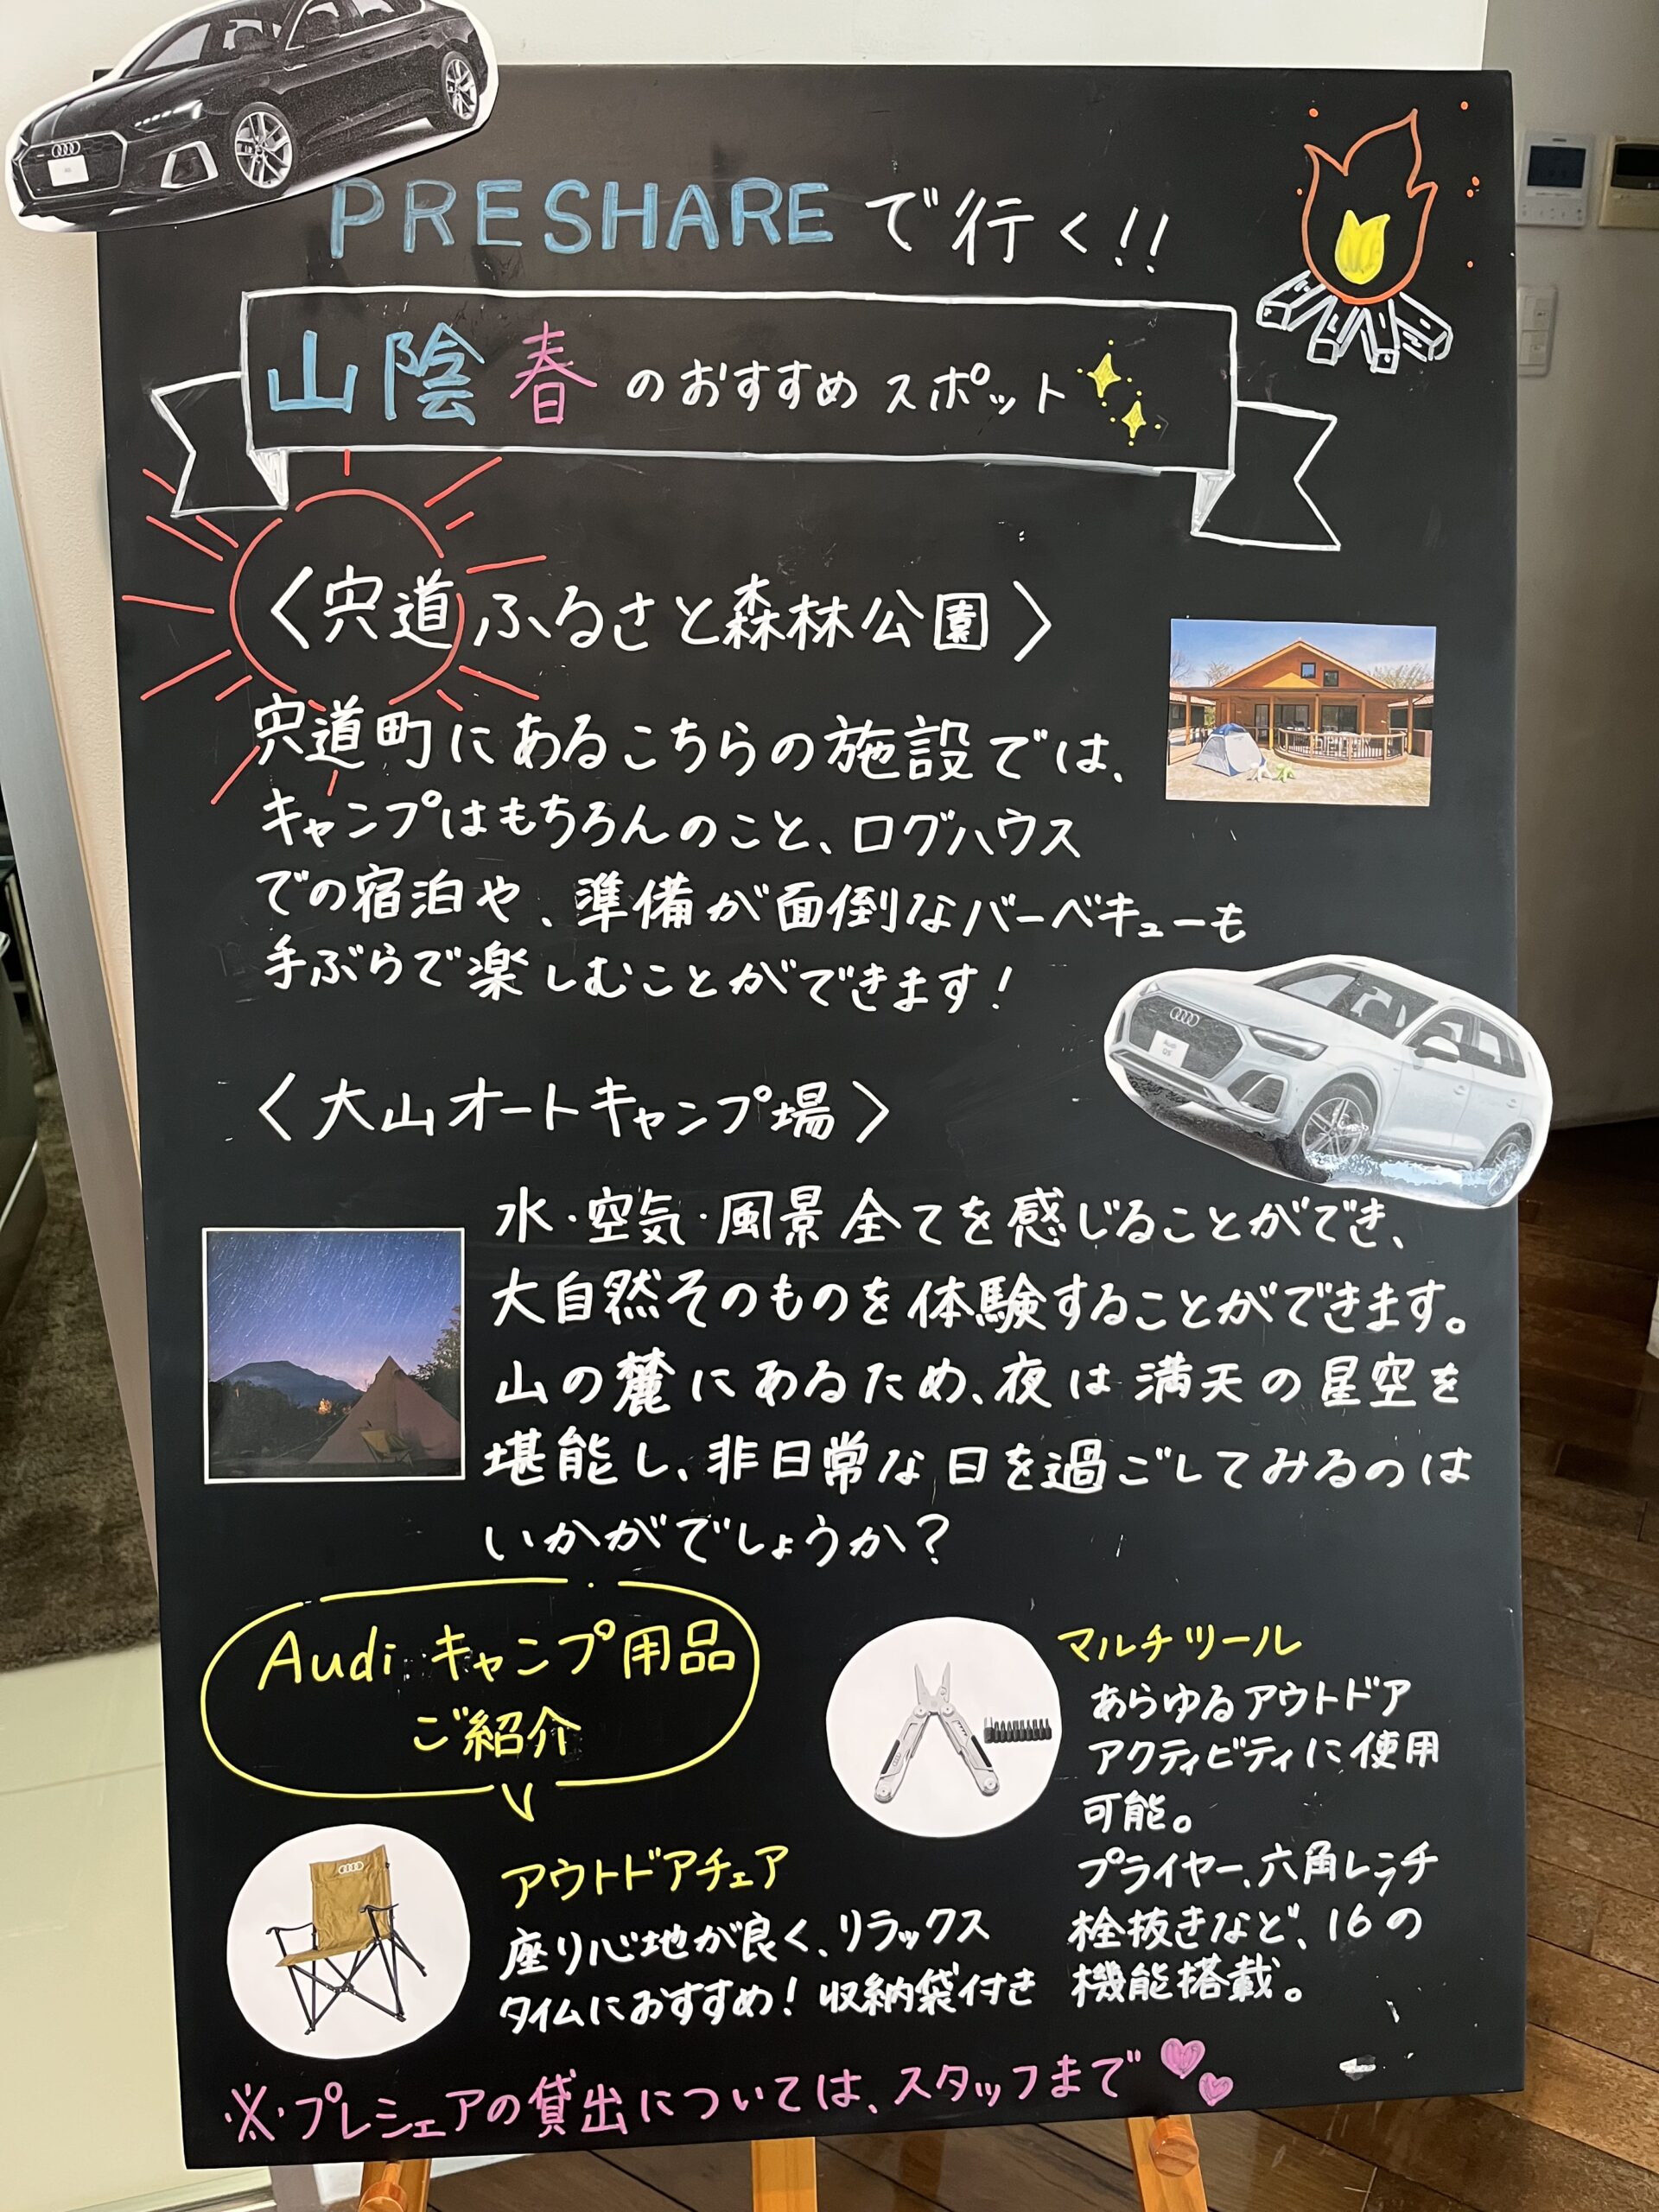 PRESHAREで行く!!
山陰 春 のおすすめ スポット
〈宍道ふるさと森林公園〉
宍道町にあるこちらの施設では、
キャンプはもちろんのこと、ログハウス
での宿泊や、準備が面倒なバーベキューも
手ぶらで楽しむことができます!
〈大山オートキャンプ場〉
水・空気・風景全てを感じることができ、
大自然そのものを体験することができます。
山の麓にあるため、夜は満天の星空を
堪能し、非日常な日を過ごしてみるのは
いかがでしょうか?
Audi キャンプ用品
ご紹介
アウトドアチェア
座り心地が良く、リラックス
タイムにおすすめ! 収納袋付き
マルチツール
あらゆるアウトドア
アクティビティに使用
可能。
プライヤー、六角レンチ
栓抜きなど、16の
機能搭載。
※プレシェアの貸出については、スタッフまで